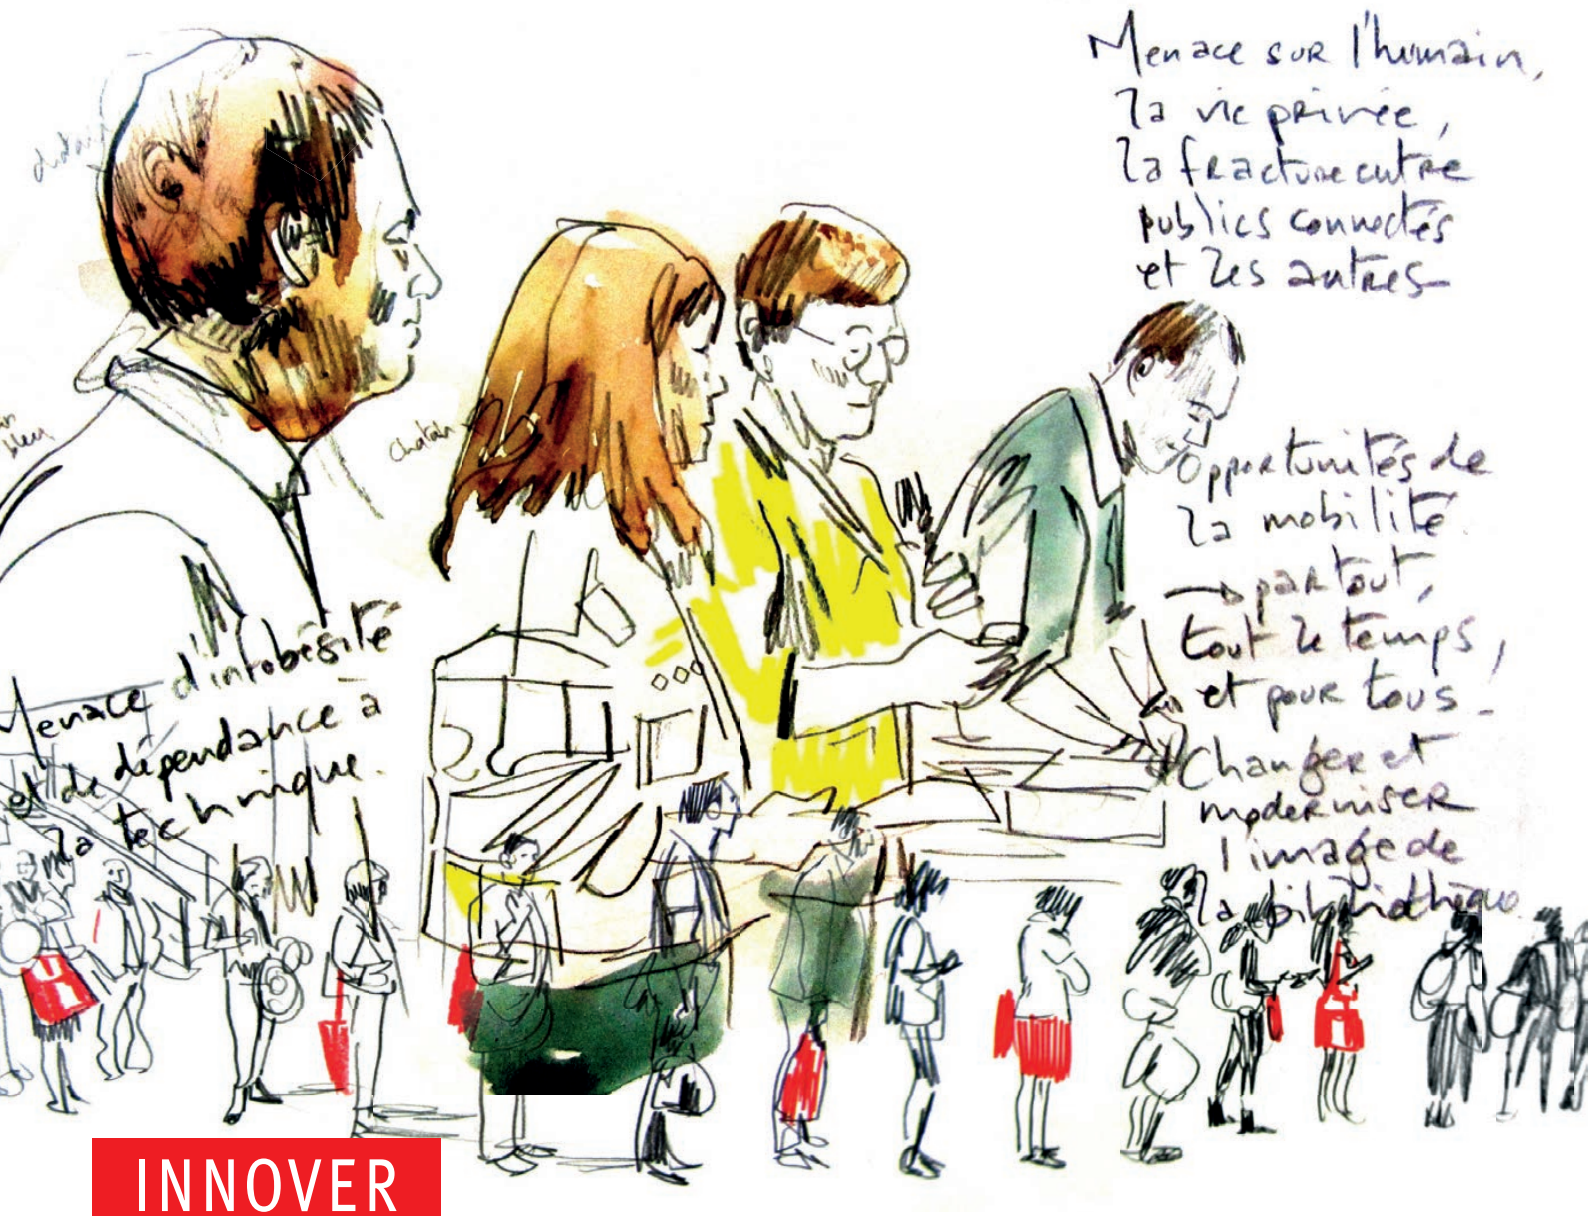 Menace sur l'humain,
la vie privée,
la fracture entre
publics connectés
et les autres
Opportunités de
la mobilité.
→ partout,
tout le temps,
et pour tous.
Changer et
moderniser
l'image de
la bibliothèque
chatain
bleu
Menace d'infobésité
et de dépendance à
la technique.
INNOVER